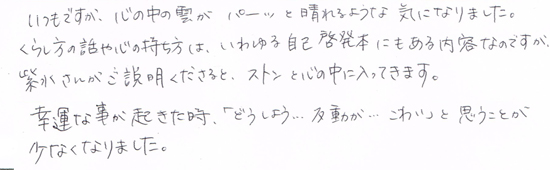 いつもですが、心の中の雲が パーッと晴れるような 気になりました。
くらし方の話や心の持ち方は、いわゆる自己啓発本にもある内容なのですが、
紫水さんがご説明くださると、ストンと心の中に入ってきます。
幸運な事が起きた時、「どうしよう… 反動が… こわい」と思うことが
少なくなりました。